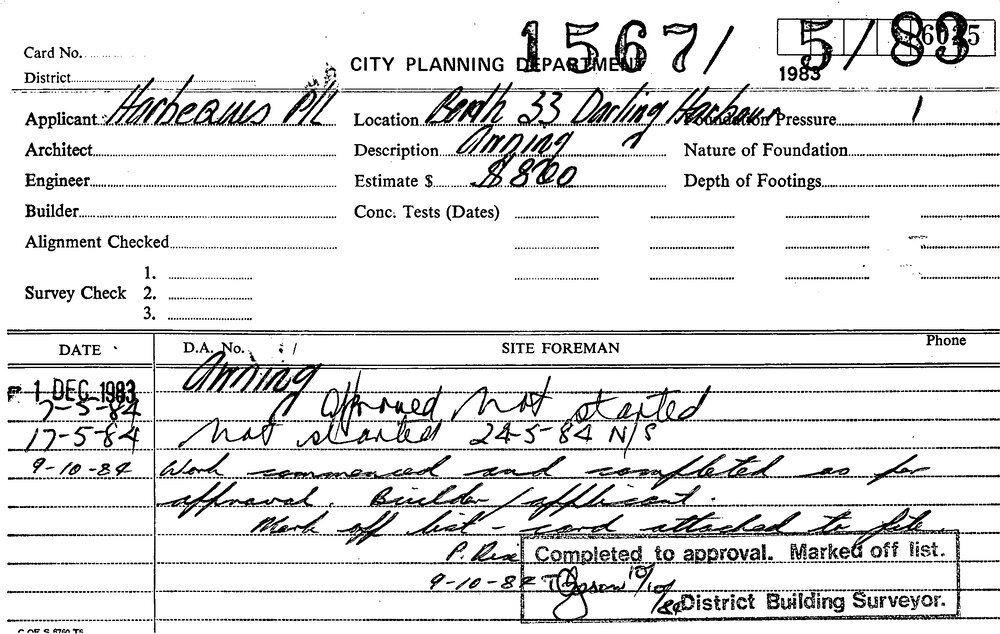 1567/ 5/83
6025
Card No.
CITY PLANNING DEPARTMENT
1983
District
Applicant Harbeaus P/L Location Berth 33 Darling Harbour Foundation Pressure
Architect Description Awning Nature of Foundation
Engineer Estimate $ $800 Depth of Footings
Builder Conc. Tests (Dates)
Alignment Checked
1.
Survey Check 2.
3.
DATE D.A. No. SITE FOREMAN Phone
1 DEC 1983 Awning
7-5-84 approved Not started
17-5-84 Not started 24-5-84 N/S
9-10-84 Work commenced and completed as per
approval. Builder/applicant.
Mark off list - card attached to file.
P.
Completed to approval. Marked off list.
9-10-84 10/10/84
District Building Surveyor.
C OF S 8760 T6